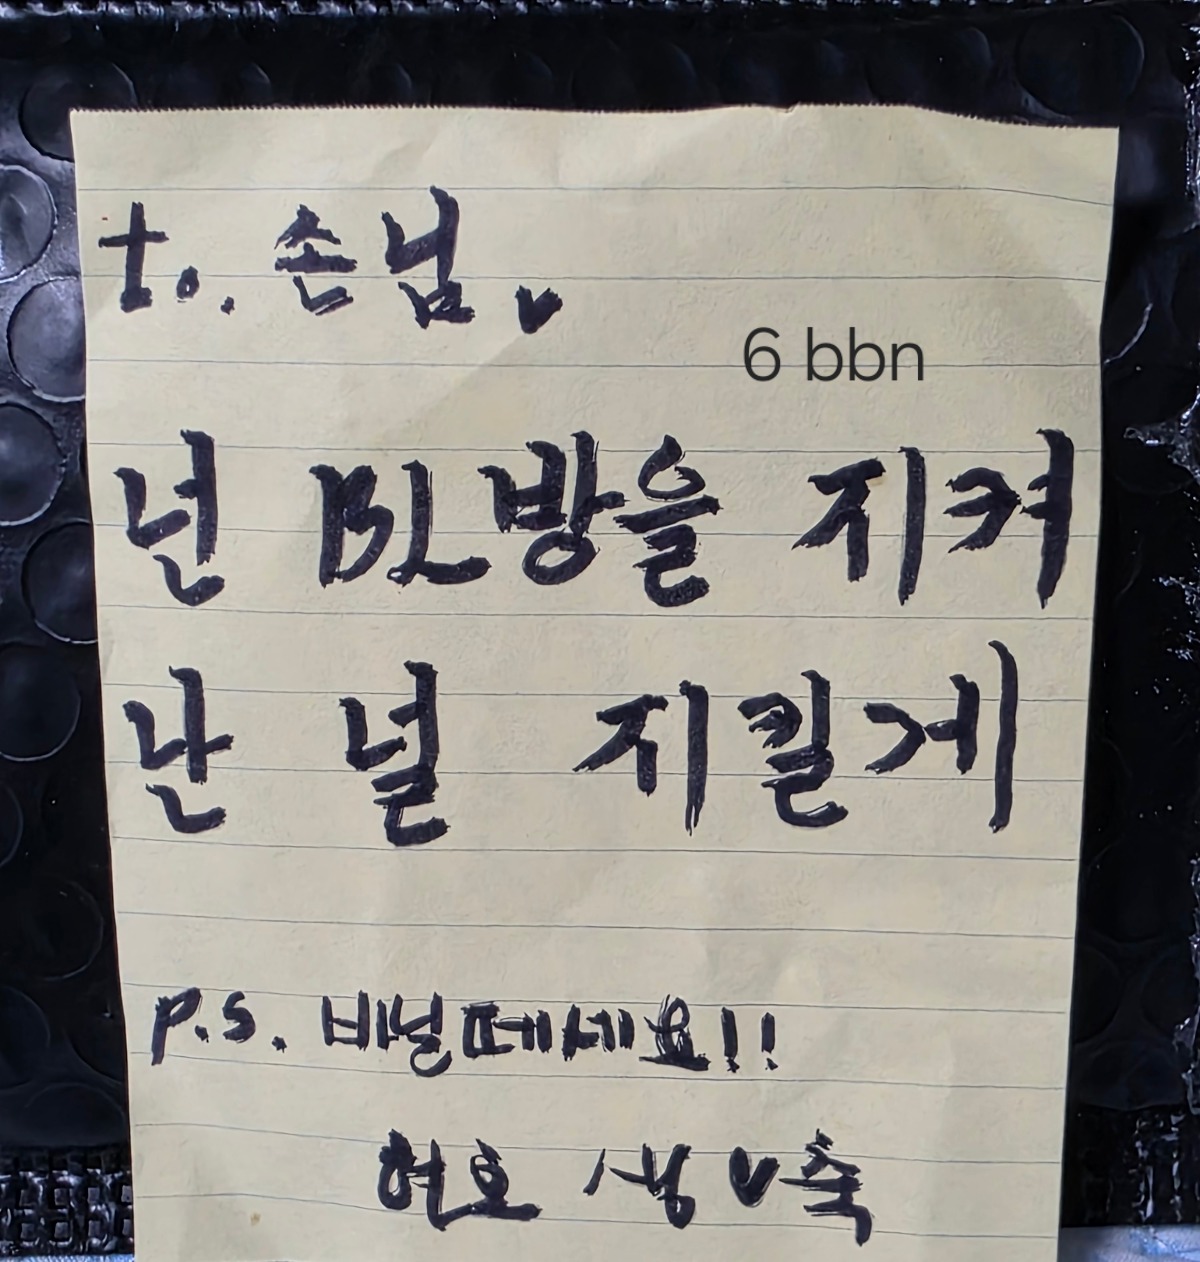 to. 손님♥
6 bbn
넌 BL방을 지켜
난 널 지킬게
P.S. 비닐떼세요!!
현호 생♥축